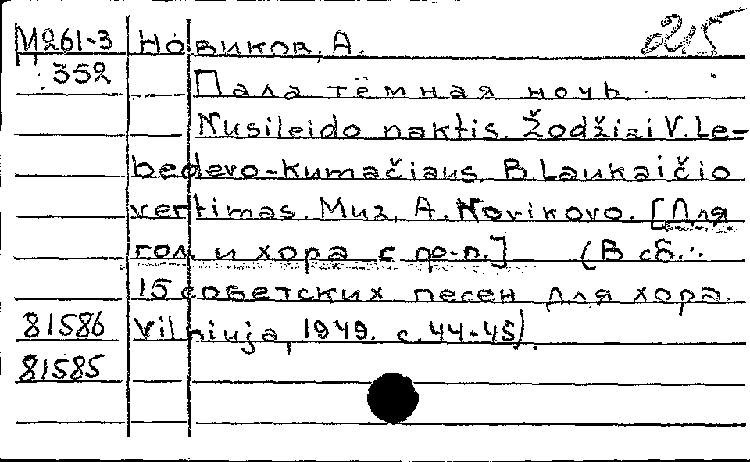 М261-3 Новиков, А. 215
352 Пала тёмная ночь.
Nusileido naktis. Žodžiai V. Le-
bedevo-Kumačiaus. B. Laukaičio
vertimas. Muz. A. Novikovo. [Для
гол. и хора с ф-п.] (В сб.:
15 советских песен для хора.
81586 Vilniuja, 1949. с. 44-45).
81585